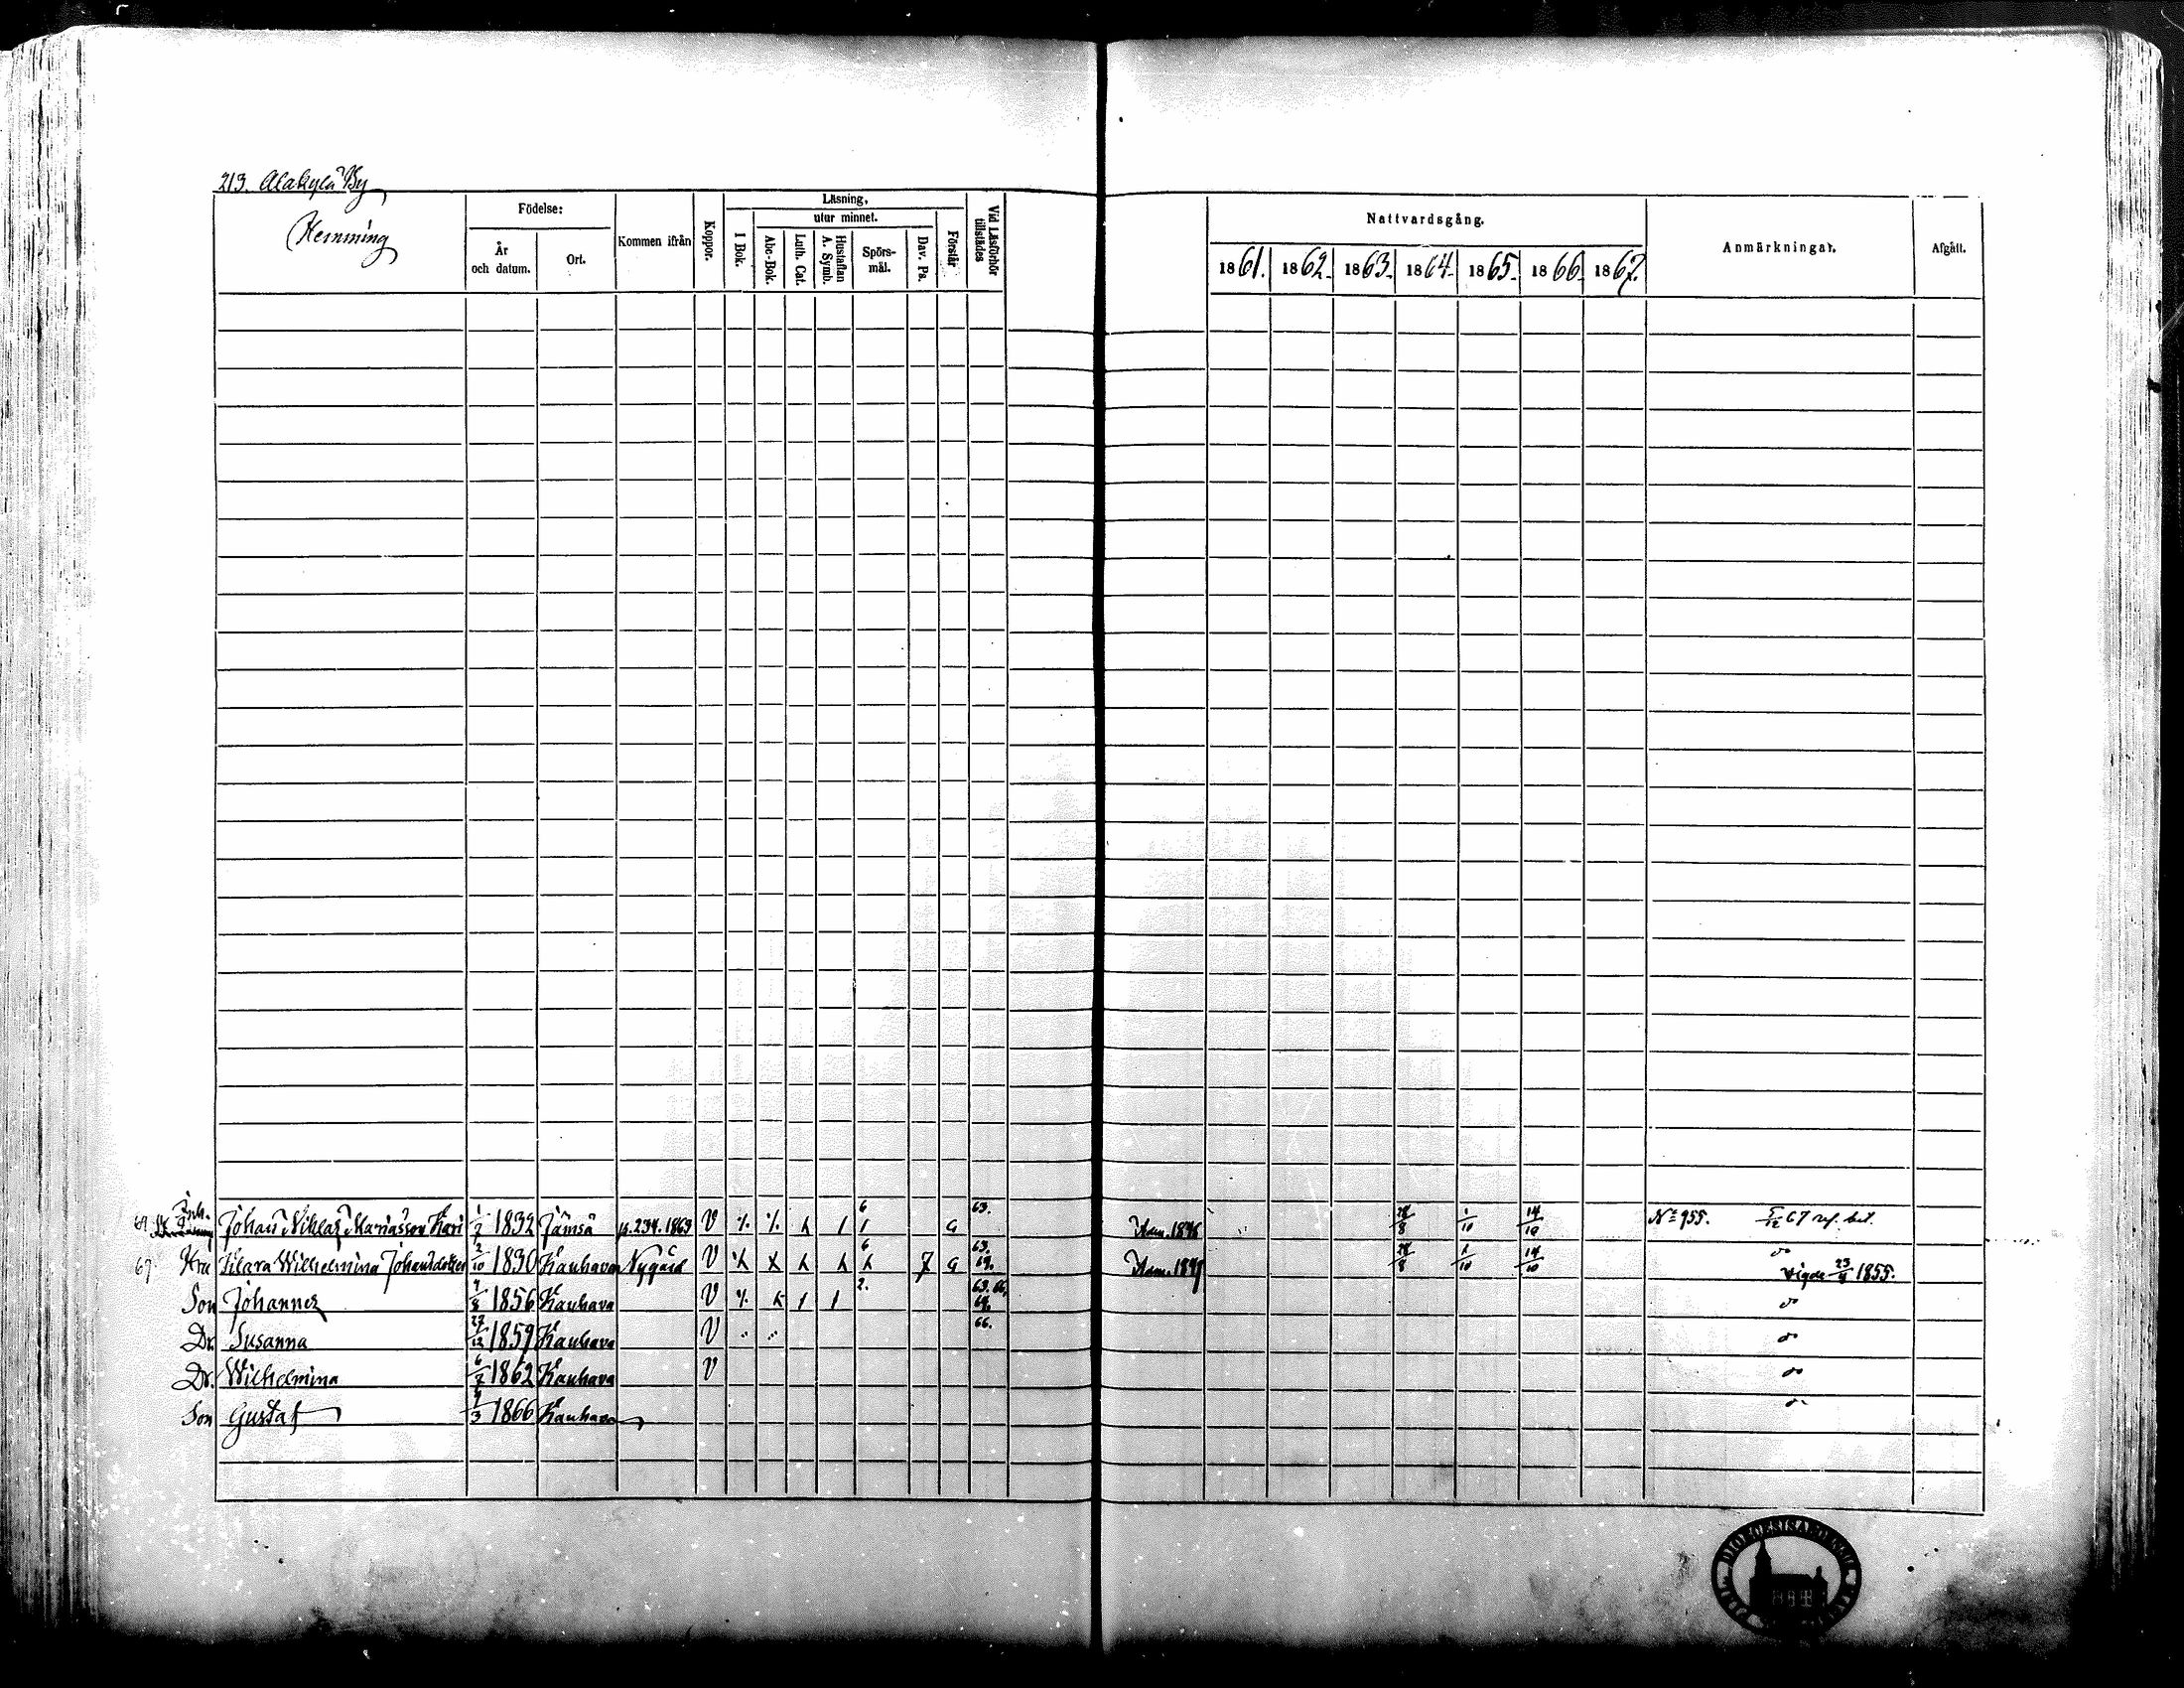 213. Alakylä By
Hemming
Födelse:
År och datum.
Ort.
Kommen ifrån
Koppor.
Läsning,
I Bok.
utur minnet.
Abc-Bok.
Luth. Cat.
Hustaflan A. Symb.
Spörs-mål.
Dav. Ps.
Förstår
Vid Läsförhör tillstädes
Nattvardsgång.
1861. 1862. 1863. 1864. 1865. 1866. 1867.
Anmärkningar.
Afgått.
Inh. Johan Niklas Mariasson Kari 1/2 1832 Jämsä p. 234. 1863 V 6 G 63. Adm. 1846 28/8 1/10 14/10 No 955. 5/12 67 ref. bet.
67 Hru Klara Wilhelmina Johansdotter 2/10 1830 Kauhava Nygård V 6 7 G 63. 64. Adm. 1847 28/8 1/10 14/10 do Vigde 23/4 1855.
Son Johannes 7/8 1856 Kauhava V 2. 63. 66. 64. do
Dr. Susanna 27/12 1859 Kauhava V 66. do
Dr. Wilhelmina 6/7 1862 Kauhava V do
Son Gustaf 4/3 1866 Kauhava do